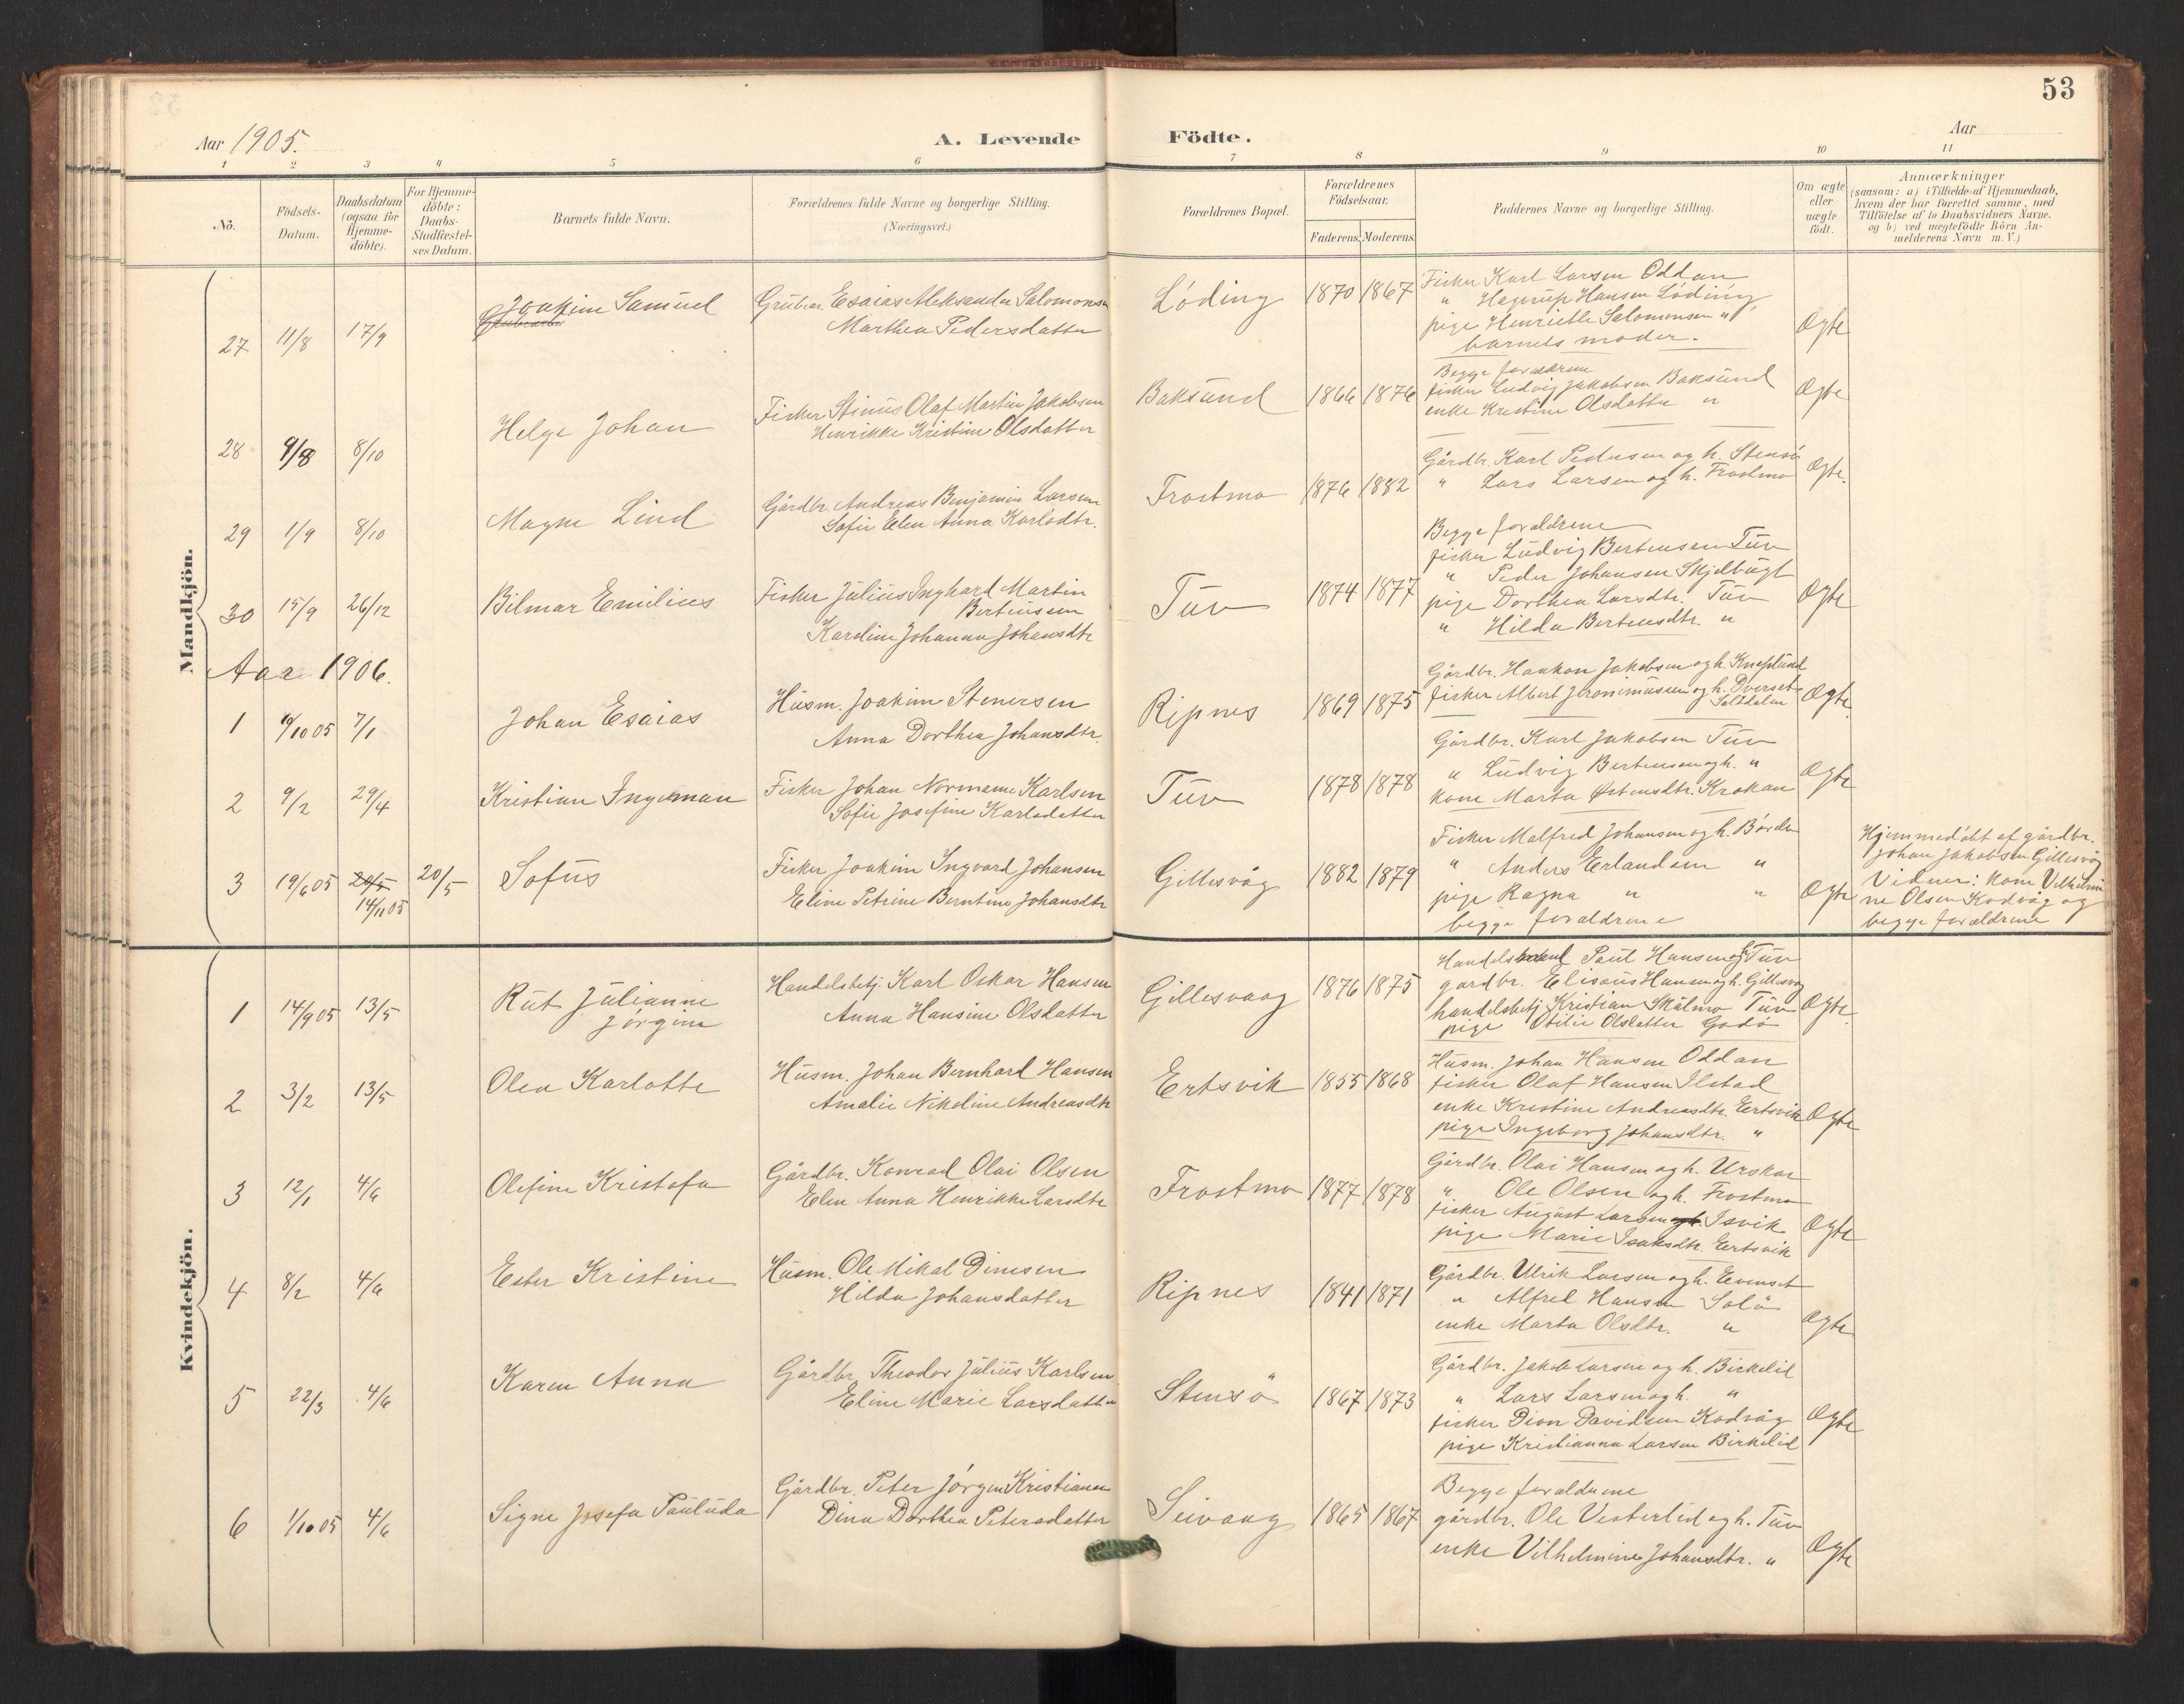 53
Aar 1905.
A. Levende Födte.
Aar
1 2 3 4 5 6 7 8 9 10 11
Nö.
Födsels-Datum.
Daabsdatum (ogsaa for Hjemme-döbte).
For Hjemme-döbte: Daabs-Stadfæstel-ses Datum.
Barnets fulde Navn.
Forældrenes fulde Navne og borgerlige Stilling. (Næringsvei.)
Forældrenes Bopæl.
Forældrenes Födselsaar.
Faderens. Moderens.
Faddernes Navne og borgerlige Stilling.
Om ægte eller uægte födt.
Anmærkninger
(saasom: a) i Tilfælde af Hjemmedaab,
hvem der har forrettet samme, med
Tilföielse af to Daabsvidners Navne.
og b) ved uægtefödte Börn An-
melderens Navn m. V.)
Mandkjön.
27 11/8 17/9 Joakim Samuel
Grubear. Esaias Aleksander Salomonsen
Marthea Pedersdatter
Löding 1870 1867
Fisker Karl Larsen Oddan
" Hagerup Hansen Löding
pige Henriette Salomonsen "
barnets moder.
Ægte
28 9/8 8/10 Helge Johan
Fisker Stinus Olaf Martin Jakobsen
Henrikke Kristine Olsdatter
Baksund 1866 1876
Begge forældrene
fisker Ludvig Jakobsen Baksund
enke Kristine Olsdatter "
Ægte
29 1/9 8/10 Magne Lind
Gårdbr. Andreas Benjamin Larsen
Sofie Elen Anna Karlsdtr.
Frostmo 1876 1882
Gårdbr. Karl Pedersen og h. Stensö
" Lars Larsen og h. Frostmo
Ægte.
30 15/9 26/12 Bilmar Emilius
Fisker Julius Inghard Martin
Berteusen
Karoline Johanna Johansdtr
Tuv 1874 1877
Begge forældrene
fisker Ludvig Berteusen Tuv
" Peder Johansen Skjelbugt
pige Dorthea Larsdtr. Tuv
" Hilda Berteusdtr. "
Ægte
Aar 1906.
1 9/10 05 7/1 Johan Esaias
Husm. Joakim Stenersen
Anna Dorthea Johansdtr.
Ripnes 1869 1875
Gårdbr. Haakon Jakobsen og h. Kneplund
fisker Albert Jeronimussen og h. Dverset
Saltdalen
Ægte.
2 9/2 29/4 Kristian Ingeman
Fisker Johan Normann Karlsen
Sofie Josefine Karlsdatter
Tuv 1878 1878
Gårdbr. Karl Jakobsen Tuv
" Ludvig Berteusen og h. "
kone Marta Östensdtr. Krokan
Ægte
3 19/6 05 20/5 14/11 05 20/5 Sofus
Fisker Joakim Ingvard Johansen
Eline Petrine Berntine Johansdtr
Gillesvåg 1882 1879
Fisker Malfred Johansen og h.
" Anders Erlandsen "
pige Ragna " "
begge forældrene
Ægte
Hjemmedöbt af gårdbr.
Johan Jakobsen Gillesvåg
Vidner: Kone Vilhelmi-
ne Olsen Kodvåg og
begge forældrene
Kvindekjön.
1 14/9 05 13/5 Rut Julianne
Jörgine
Handelsbetj. Karl Oskar Hansen
Anna Hansine Olsdatter
Gillesvaag 1876 1875
Paul Hansen og h. Tuv
gardbr. Elisæus Hansen og h. Gillesvåg
handelsbetj. Kristian Skålmo Tuv
pige Otilie Olsdatter Godö
Ægte.
2 3/2 13/5 Olea Karlotte
Husm. Johan Bernhard Hansen
Amalie Nikoline Andreasdtr
Ertsvik 1855 1868
Husm. Johan Hansen Oddan
fisker Olaf Hansen Ilstad
enke Kristine Andreasdtr. Eertsvik
pige Ingeborg Johansdtr. "
Ægte
3 12/1 4/6 Olefine Kristofa
Gårdbr. Konrad Olai Olsen
Elen Anna Henrikke Larsdtr
Frostmo 1877 1878
Gårdbr. Olai Hansen og h. Urskar
" Ole Olsen og h. Frostmo
fisker August Larsen og h. Isvik
pige Marie Isaksdtr. Eertsvik
Ægte
4 8/2 4/6 Ester Kristine
Husm. Ole Mikal Dinesen
Hilda Johansdatter
Ripnes 1841 1871
Gårdbr. Ulrik Larsen og h. Evenset
" Alfred Hansen Salö
enke Marta Olsdtr. "
Ægte
5 22/3 4/6 Karen Anna
Gårdbr. Theodor Julius Karlsen
Eline Marie Larsdatter
Stensö 1867 1873
Gårdbr. Jakob Larsen og h. Birkelid
" Lars Larsen og h. "
fisker Dion Davidsen Kodvåg
pige Kristianna Larsen Birkelid
Ægte
6 1/10 05 4/6 Signe Josefa Pauluda
Gårdbr. Peter Jörgen Kristiansen
Dina Dorthea Petersdatter
Seivaag 1865 1867
Begge forældrene
gårdbr. Ole Vesterlid og h. Tuv
enke Vilhelmine Johansdtr. "
Ægte